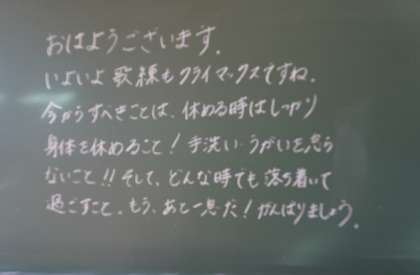 おはようございます。
いよいよ歌練もクライマックスですね。
今からすべきことは、休める時はしっかり
身体を休めること!手洗い・うがいを怠ら
ないこと!!そして、どんな時でも落ち着いて
過ごすこと。もう、あと一息だ!がんばりましょう。